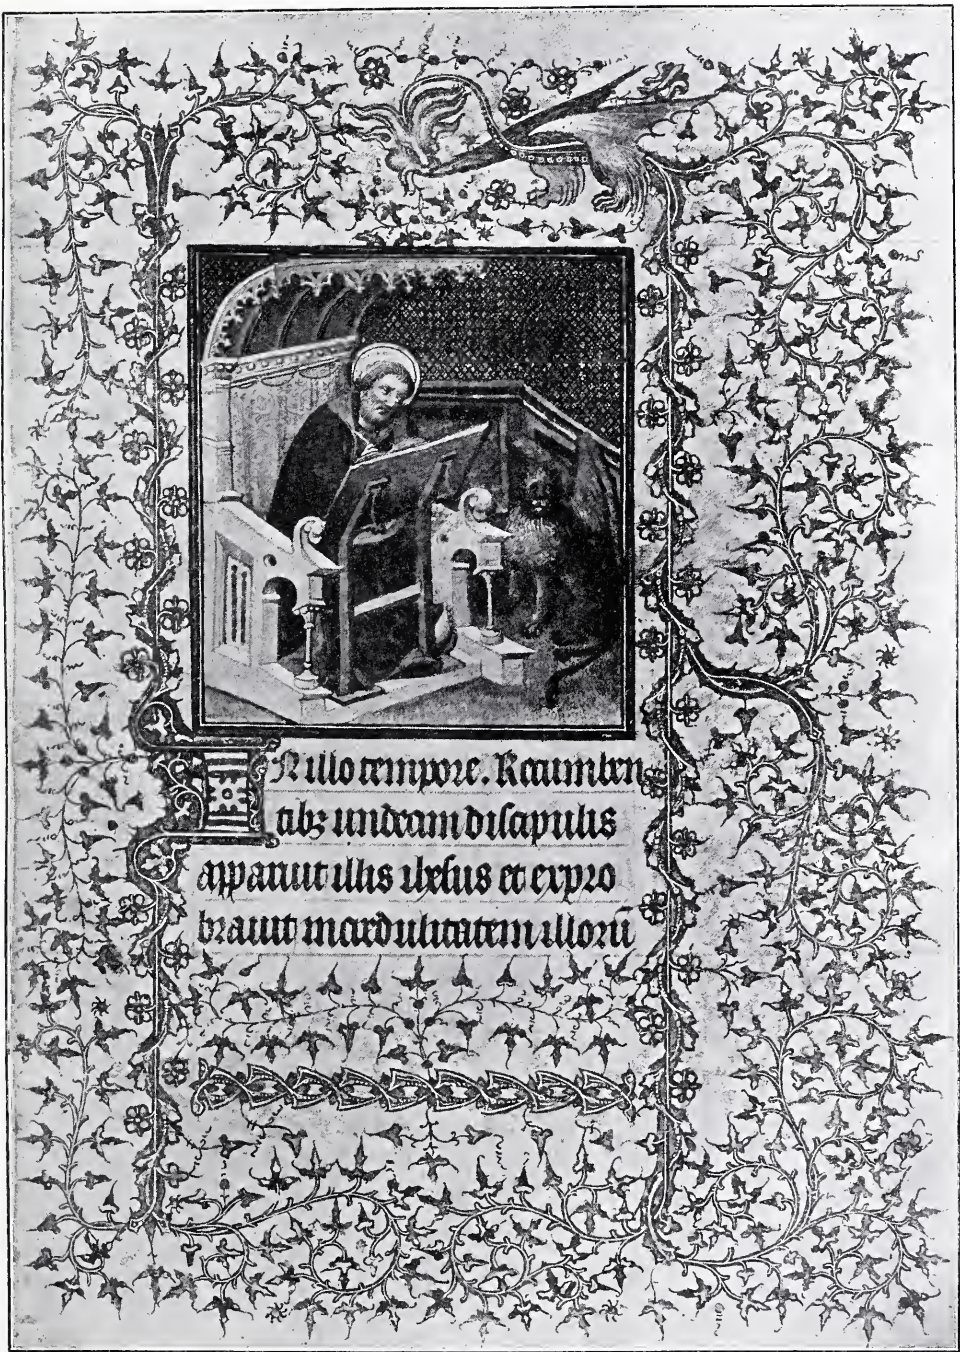 IN illo tempore. Recumben
tibȝ undecim discipulis
apparuit illis ihesus et expro
brauit incredulitatem illorū